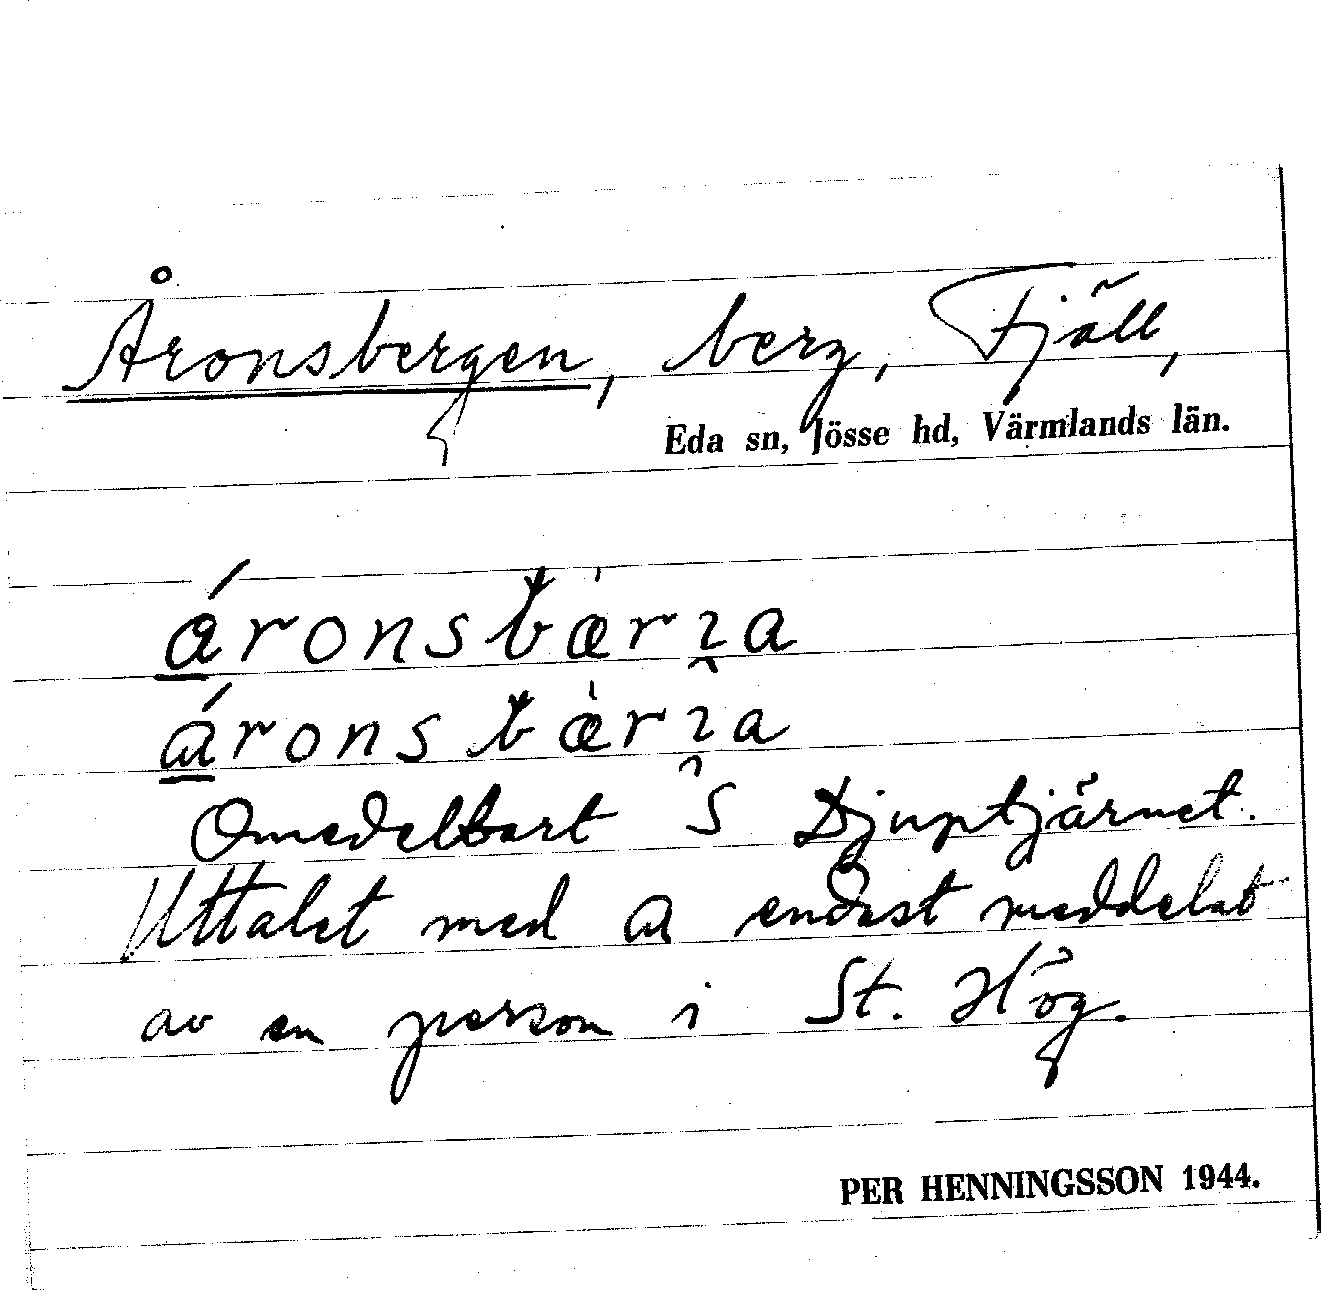 Åronsbergen, berg, Fjäll,
Eda sn, Jösse hd, Värmlands län.
áronsbæ̀rɿa
áronsbæ̀rɿa
Omedelbart S Djuptjärnet.
Uttalet med a endast meddelat
av en person i St. Hög.
PER HENNINGSSON 1944.